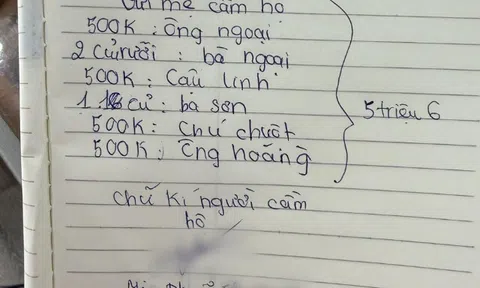 mẹ cầm hộ
500K : Ông ngoại
2 củ rưỡi : bà ngoại
500K : Cậu Linh
1 củ : bà sơn
500K : Chú chuột
500K : Ông hoằng
5 triệu 6
Chữ kí người cầm
hộ